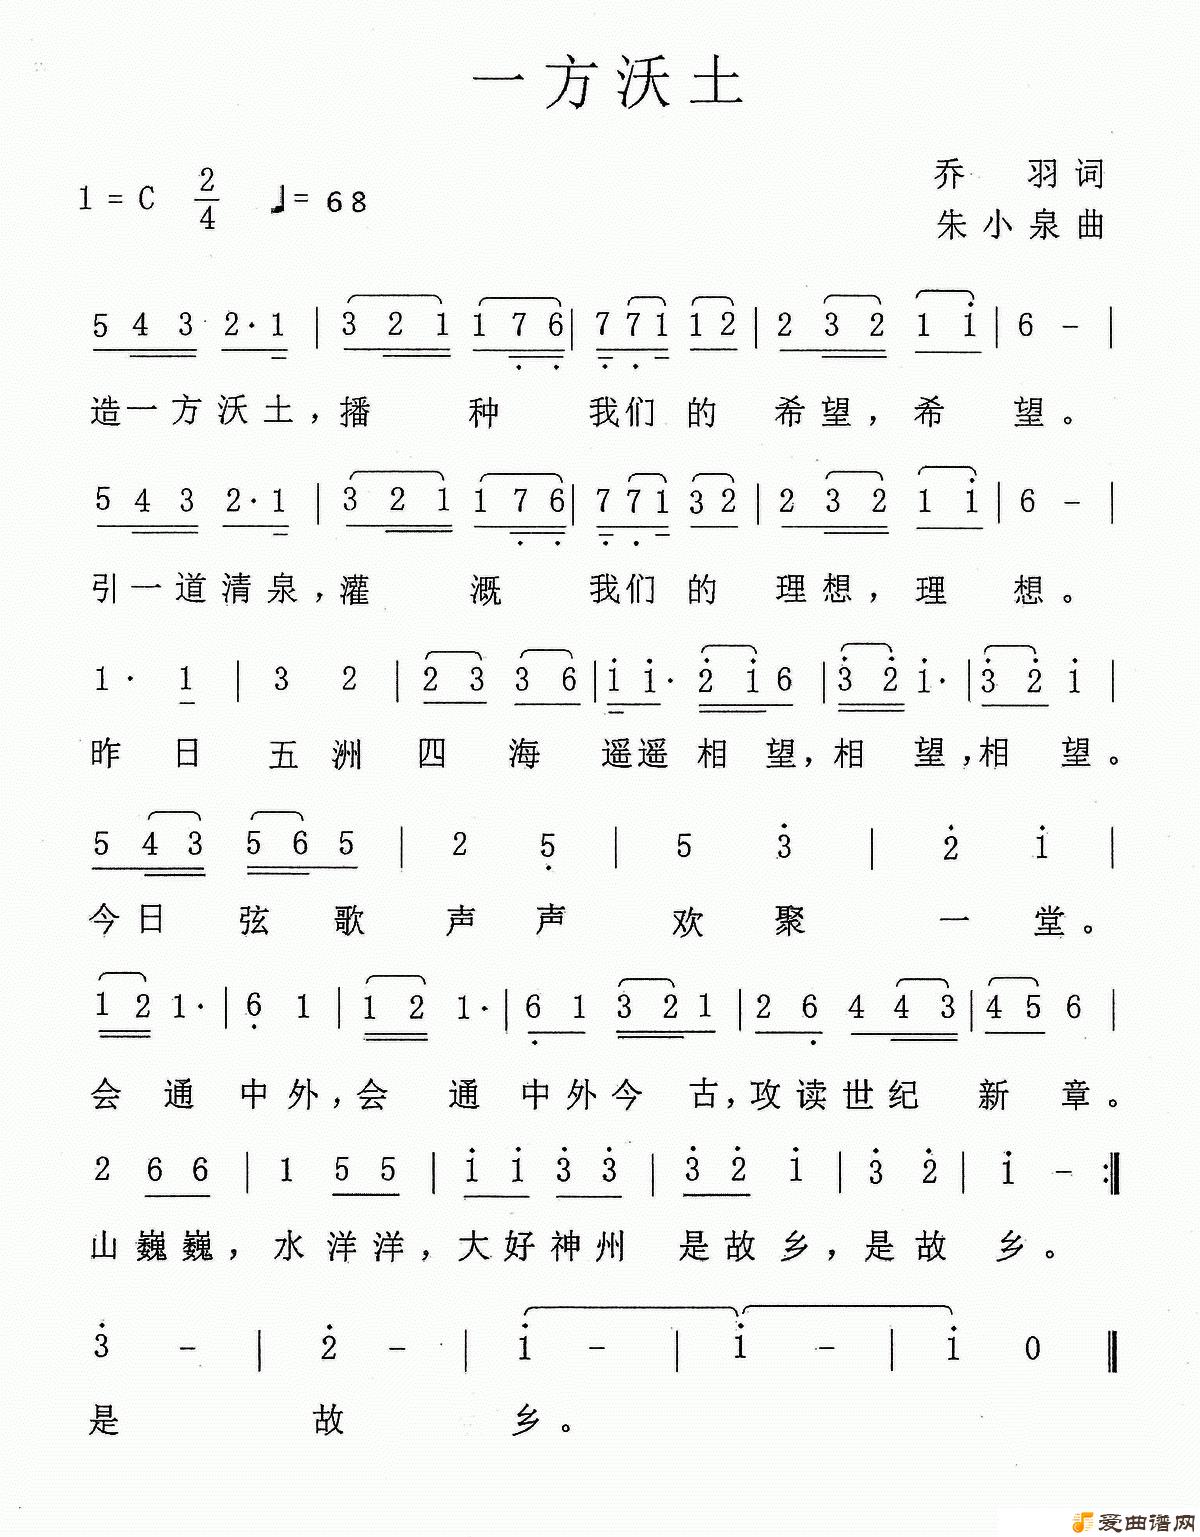 一方沃土
1=C 2/4 ♩=68
乔 羽词
朱小泉曲
5 4 3 2· 1 | 3 2 1 1 7 6 | 7 7 1 1 2 | 2 3 2 1 i | 6 - |
造一方沃土，播 种 我们的 希望，希 望。
5 4 3 2· 1 | 3 2 1 1 7 6 | 7 7 1 3 2 | 2 3 2 1 i | 6 - |
引一道清泉，灌 溉 我们的 理想，理 想。
1· 1 | 3 2 | 2 3 3 6 | i i· 2 i 6 | 3 2 i· | 3 2 i |
昨 日 五洲 四 海 遥遥相望，相 望，相 望。
5 4 3 5 6 5 | 2 5 | 5 3 | 2 i |
今日 弦 歌 声 声 欢 聚 一 堂。
1 2 1· | 6 1 | 1 2 1· | 6 1 3 2 1 | 2 6 4 4 3 | 4 5 6 |
会 通 中外，会 通 中外今 古，攻读世纪 新 章。
2 6 6 | 1 5 5 | i i 3 3 | 3 2 i | 3 2 | i - :‖
山巍巍，水洋洋，大好神州 是故乡，是故 乡。
3 - | 2 - | i - | i - | i 0 ‖
是 故 乡。
爱曲谱网